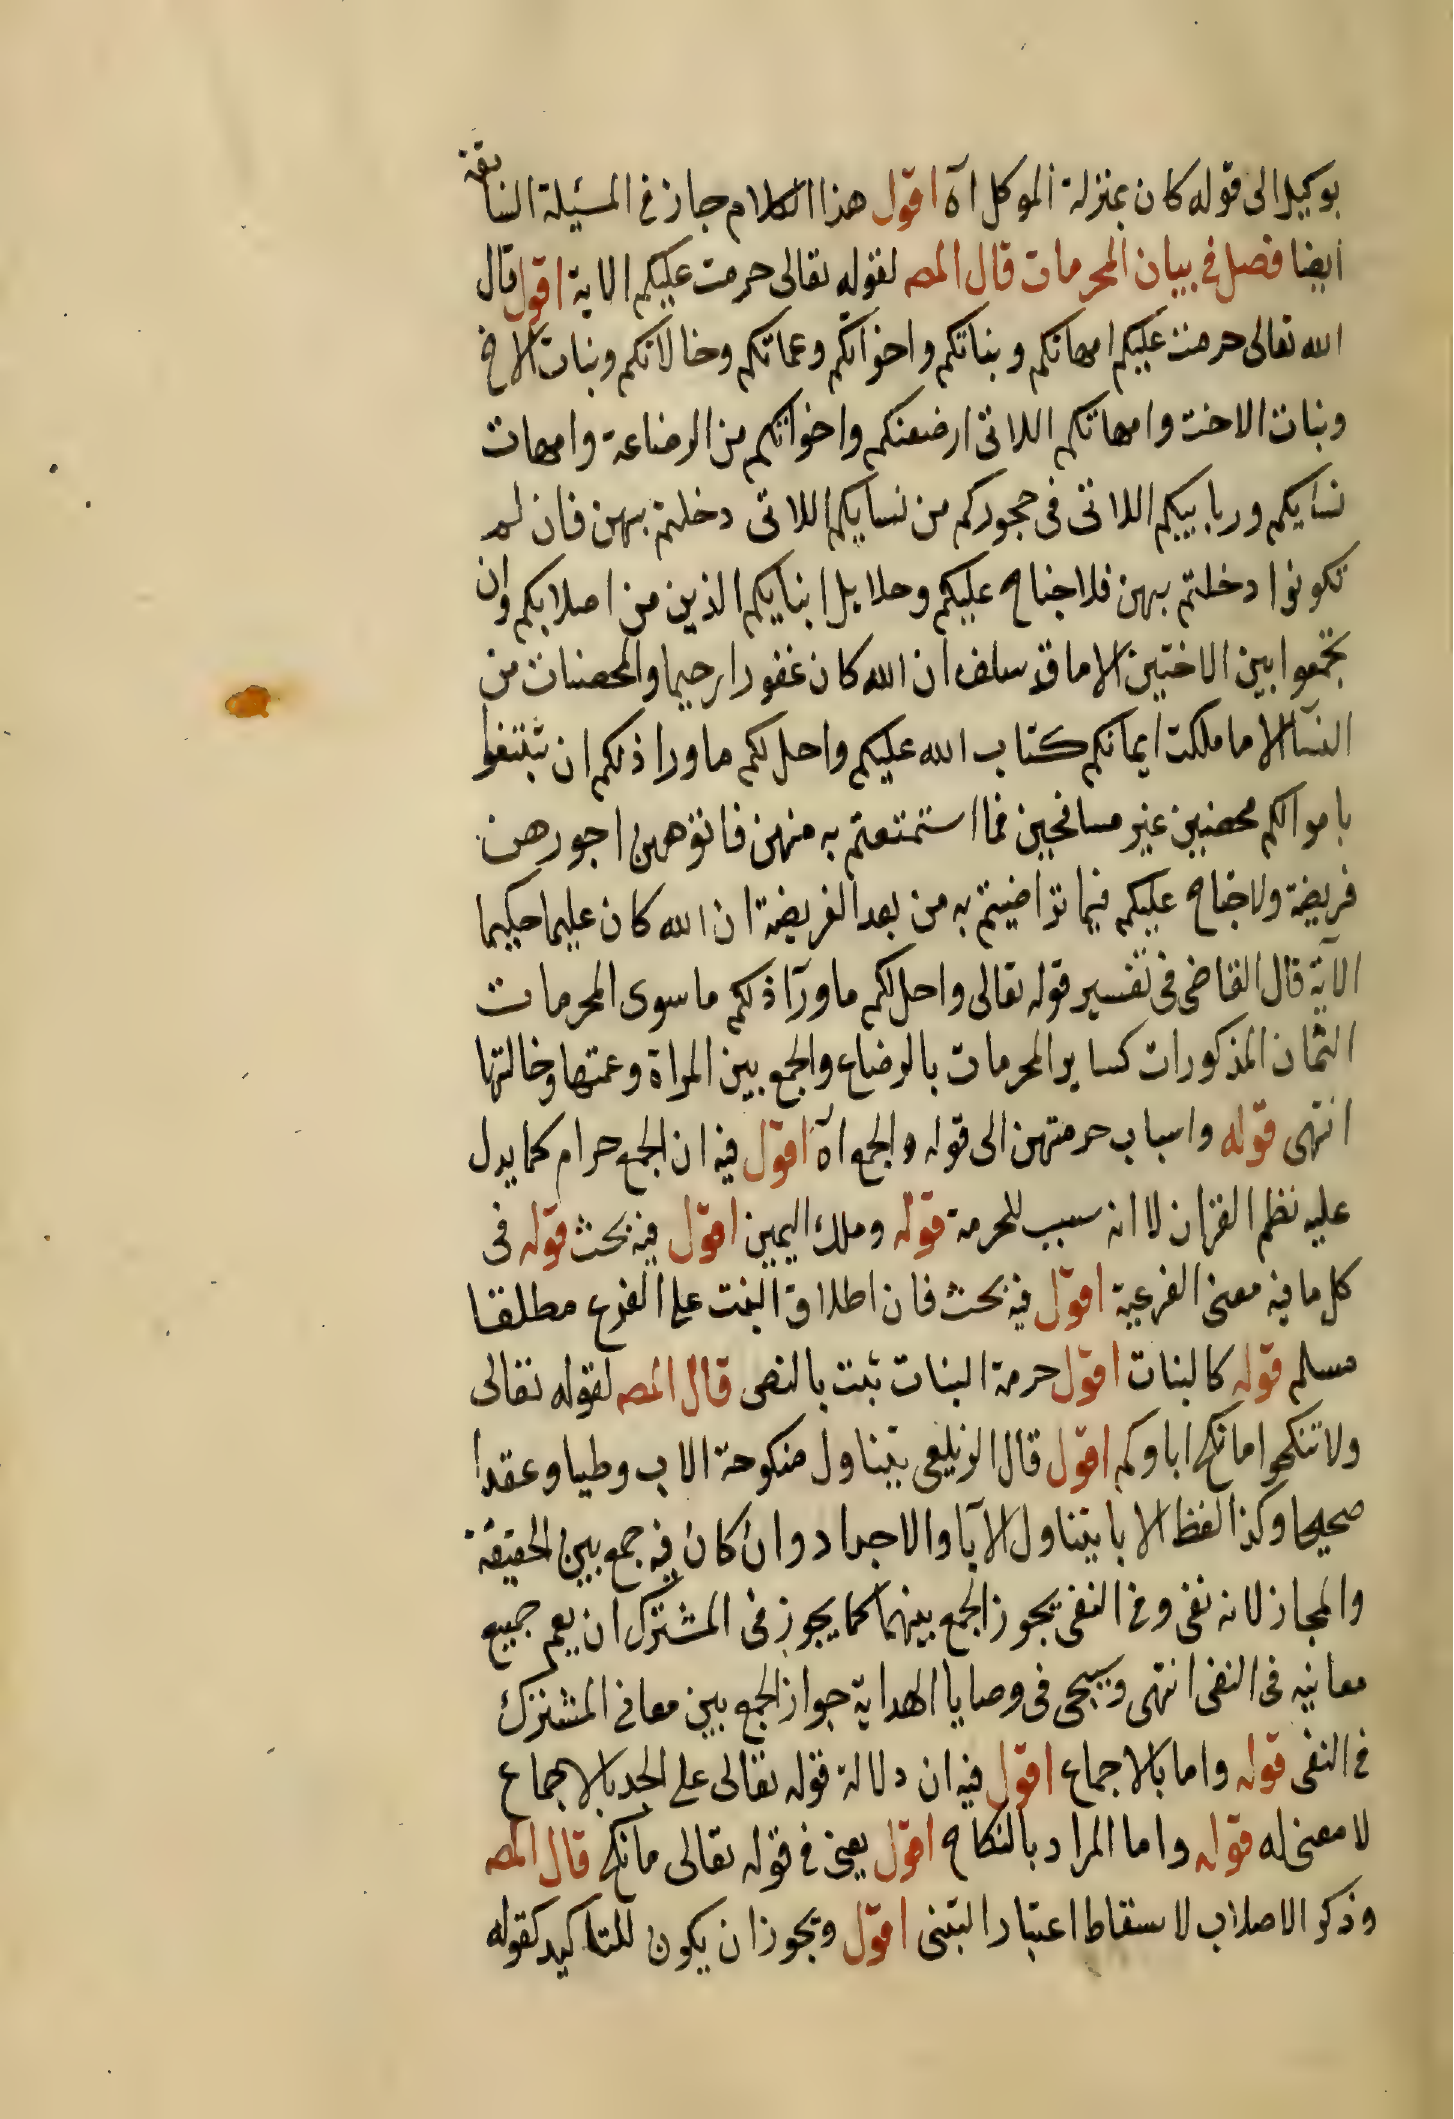 بوكيل الى قوله كان بمنزلة الموكل اه اقول هذا الكلام جاز في المسئلة السابقة
ايضا فصل في بيان المحرمات قال المصـ لقوله تعالى حرمت عليكم الاية اقول قال
الله تعالى حرمت عليكم امهاتكم وبناتكم واخواتكم وعماتكم وخالاتكم وبنات الاخ
وبنات الاخت وامهاتكم اللاتى ارضعنكم واخواتكم من الرضاعة وامهات
نسايكم وربايبكم اللاتى فى حجوركم من نسايكم اللاتى دخلتم بهن فان لم
تكونوا دخلتم بهن فلا جناح عليكم وحلايل ابنايكم الذين من اصلابكم وان
تجمعوا بين الاختين الا ما قد سلف ان الله كان غفورا رحيما والمحصنات من
النسآ الا ما ملكت ايمانكم كتاب الله عليكم واحل لكم ما ورا ذلكم ان تبتغوا
باموالكم محصنين غير مسافحين فما استمتعتم به منهن فاتوهن اجورهن
فريضة ولا جناح عليكم فيما تراضيتم به من بعد الفريضة ان الله كان عليما حكيما
الآية قال القاضى فى تفسير قوله تعالى واحل لكم ما ورآ ذلكم ما سوى المحرمات
الثمان المذكورات كساير المحرمات بالرضاع والجمع بين المراة وعمتها وخالتها
انتهى قوله واسباب حرمتهن الى قوله والجمع اه اقول فيه ان الجمع حرام كما يدل
عليه نظم القران لا انه سبب للحرمة قوله وملك اليمين اقول فيه بحث قوله فى
كل ما فيه معنى الفرعية اقول فيه بحث فان اطلاق البنت على الفرع مطلقا
مسلم قوله كالبنات اقول حرمة البنات ثبت بالنص قال المصـ لقوله تعالى
ولا تنكحوا ما نكح اباوكم اقول قال الزيلعى يتناول منكوحة الاب وطيا وعقدا
صحيحا وكذا لفظ الابا يتناول الآبا والاجداد وان كان فيه جمع بين الحقيقة
والمجاز لانه نفى وفى النفى يجوز الجمع بينهما كما يجوز فى المشترك ان يعم جميع
معانيه فى النفى انتهى وسيجى فى وصايا الهداية جواز الجمع بين معانى المشترك
فى النفى قوله واما بالاجماع اقول فيه ان دلالة قوله تعالى على الجد بالاجماع
لا معنى له قوله واما المراد بالنكاح اقول يعنى فى قوله تعالى ما نكح قال المصـ
وذكر الاصلاب لاسقاط اعتبار التبنى اقول ويجوز ان يكون للتاكيد كقوله